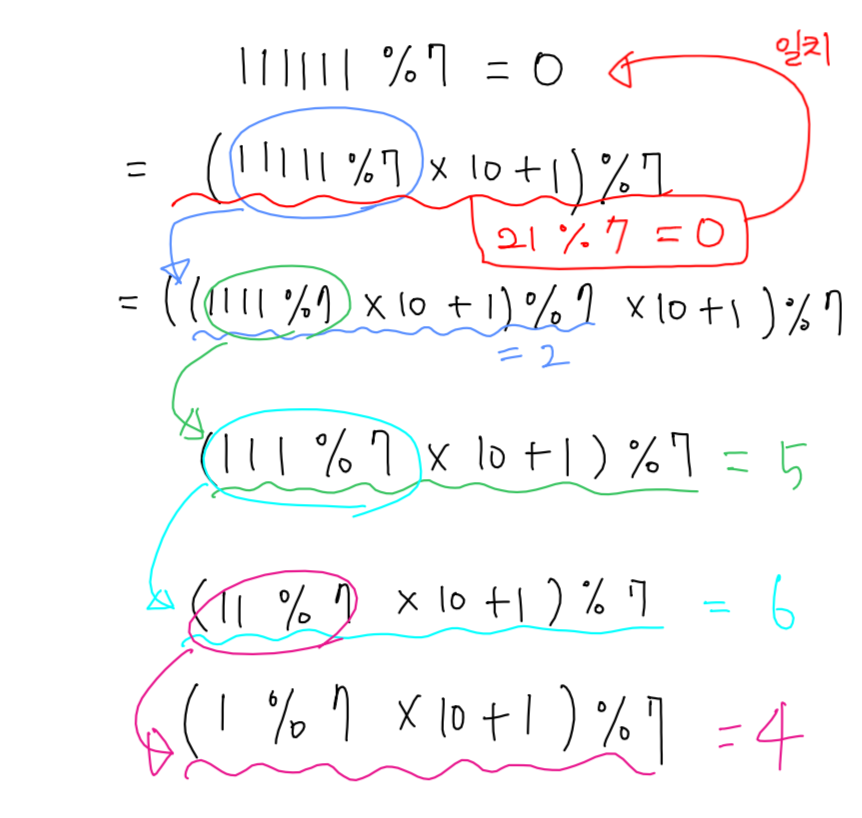 일치
111111 % 7 = 0
= (11111 % 7 × 10 + 1) % 7
21 % 7 = 0
= ((1111 % 7 × 10 + 1) % 7 × 10 + 1) % 7
= 2
(111 % 7 × 10 + 1) % 7 = 5
(11 % 7 × 10 + 1) % 7 = 6
(1 % 7 × 10 + 1) % 7 = 4